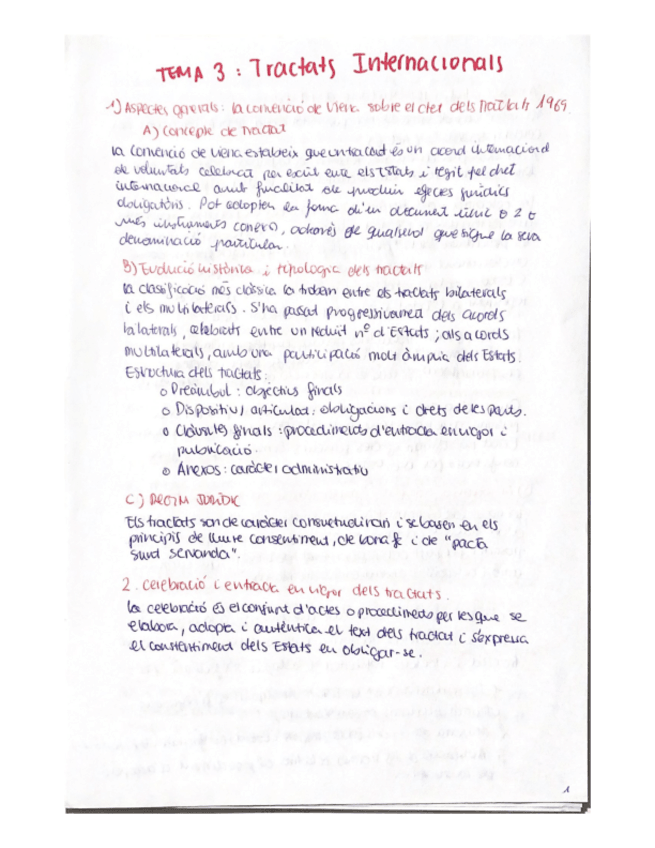 TEMA 3 : Tractats Internacionals
1) Aspectes generals: la convenció de Viena sobre el dret dels tractats 1969
A) Concepte de tractat
La Convenció de Viena estableix que un tractat és un acord internacional
de voluntats celebrat per escrit entre els Estats i regit pel dret
internacional amb finalitat de produir efectes jurídics
obligatòris. Pot adoptar la forma d'un document únic o 2 o
més instruments conexo, a través de qualsevol que sigui la seva
denominació particular.
B) Evolució històrica i tipologia dels tractats
La clasificació més clàssica la trobem entre els tractats bilaterals
i els multilaterals. S'ha passat progressivament dels acords
bilaterals, celebrats entre un reduit nº d'Estats ; als acords
multilaterals, amb una participació molt àmplia dels Estats.
Estructura dels tractats:
o Preàmbul : objectius finals
o Dispositiu/ articulat: obligacions i drets de les parts.
o Clàusules finals : procediments d'entrada en vigor i
publicació.
o Anexos : caràcter administratiu
C) REGIM JURÍDIC
Els tractats son de caràcter consuetudinari i se basen en els
principis de lliure consentiment, de bona fe i de "pacta
sunt servanda".
2. Celebració i entrada en vigor dels tractats.
La celebració és el conjunt d'actes o procediments per les que se
elabora, adopta i autèntica el text dels tractat i s'expressa
el constentiment dels Estats en obligar-se.
1